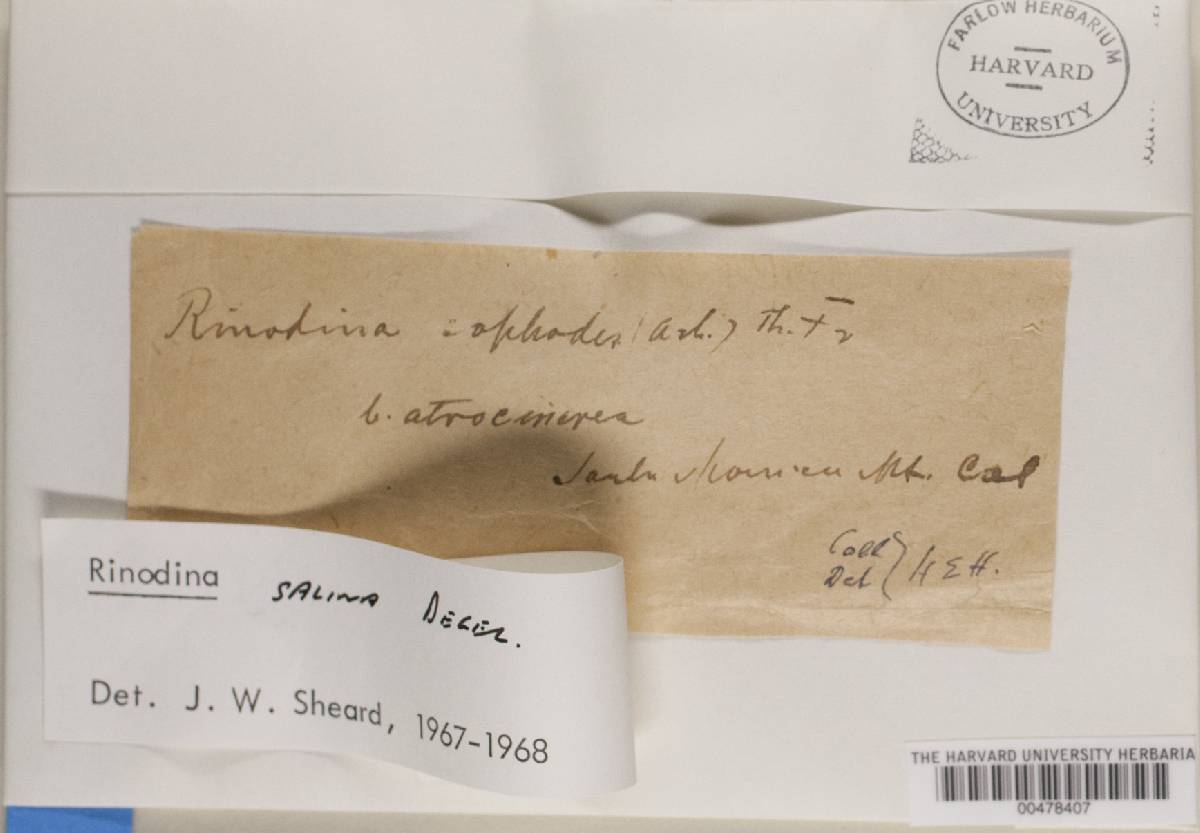 FARLOW HERBARIUM
HARVARD
UNIVERSITY
Rinodina sophodes (Ach.) Th. Fr
b. atrocinerea
Santa Monica Mt. Cal
Coll
Det } H E H.
Rinodina SALINA DEGEL.
Det. J. W. Sheard, 1967-1968
THE HARVARD UNIVERSITY HERBARIA
00478407